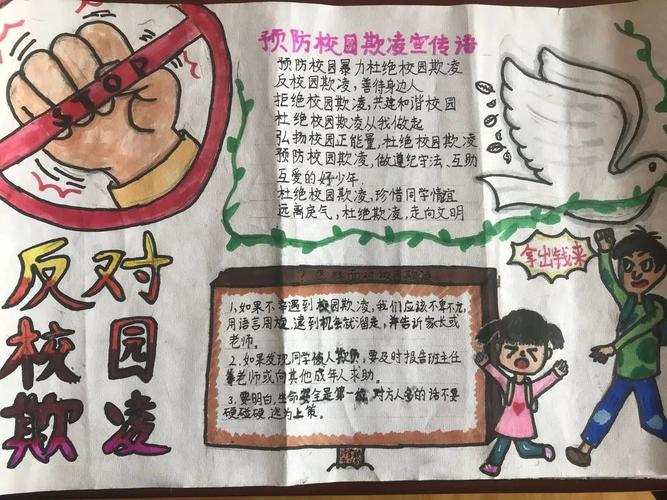 STOP
预防校园欺凌宣传语
预防校园暴力杜绝校园欺凌
反校园欺凌,善待身边人
拒绝校园欺凌,共建和谐校园
杜绝校园欺凌从我做起
弘扬校园正能量,杜绝校园欺凌
预防校园欺凌,做遵纪守法、互助
互爱的好少年.
杜绝校园欺凌,珍惜同学情宜
远离戾气,杜绝欺凌,走向文明
反对
校园
欺凌
拿出钱来
面对校园欺凌
1、如果不幸遇到校园欺凌,我们应该不卑不亢,
用语言周旋,逮到机会就溜走,并告诉家长或
老师。
2、如果发现同学被人欺负,要及时报告班主任
老师或向其他成年人求助。
3、要明白,生命安全是第一位,对方人多的话不要
硬碰硬,逃为上策。